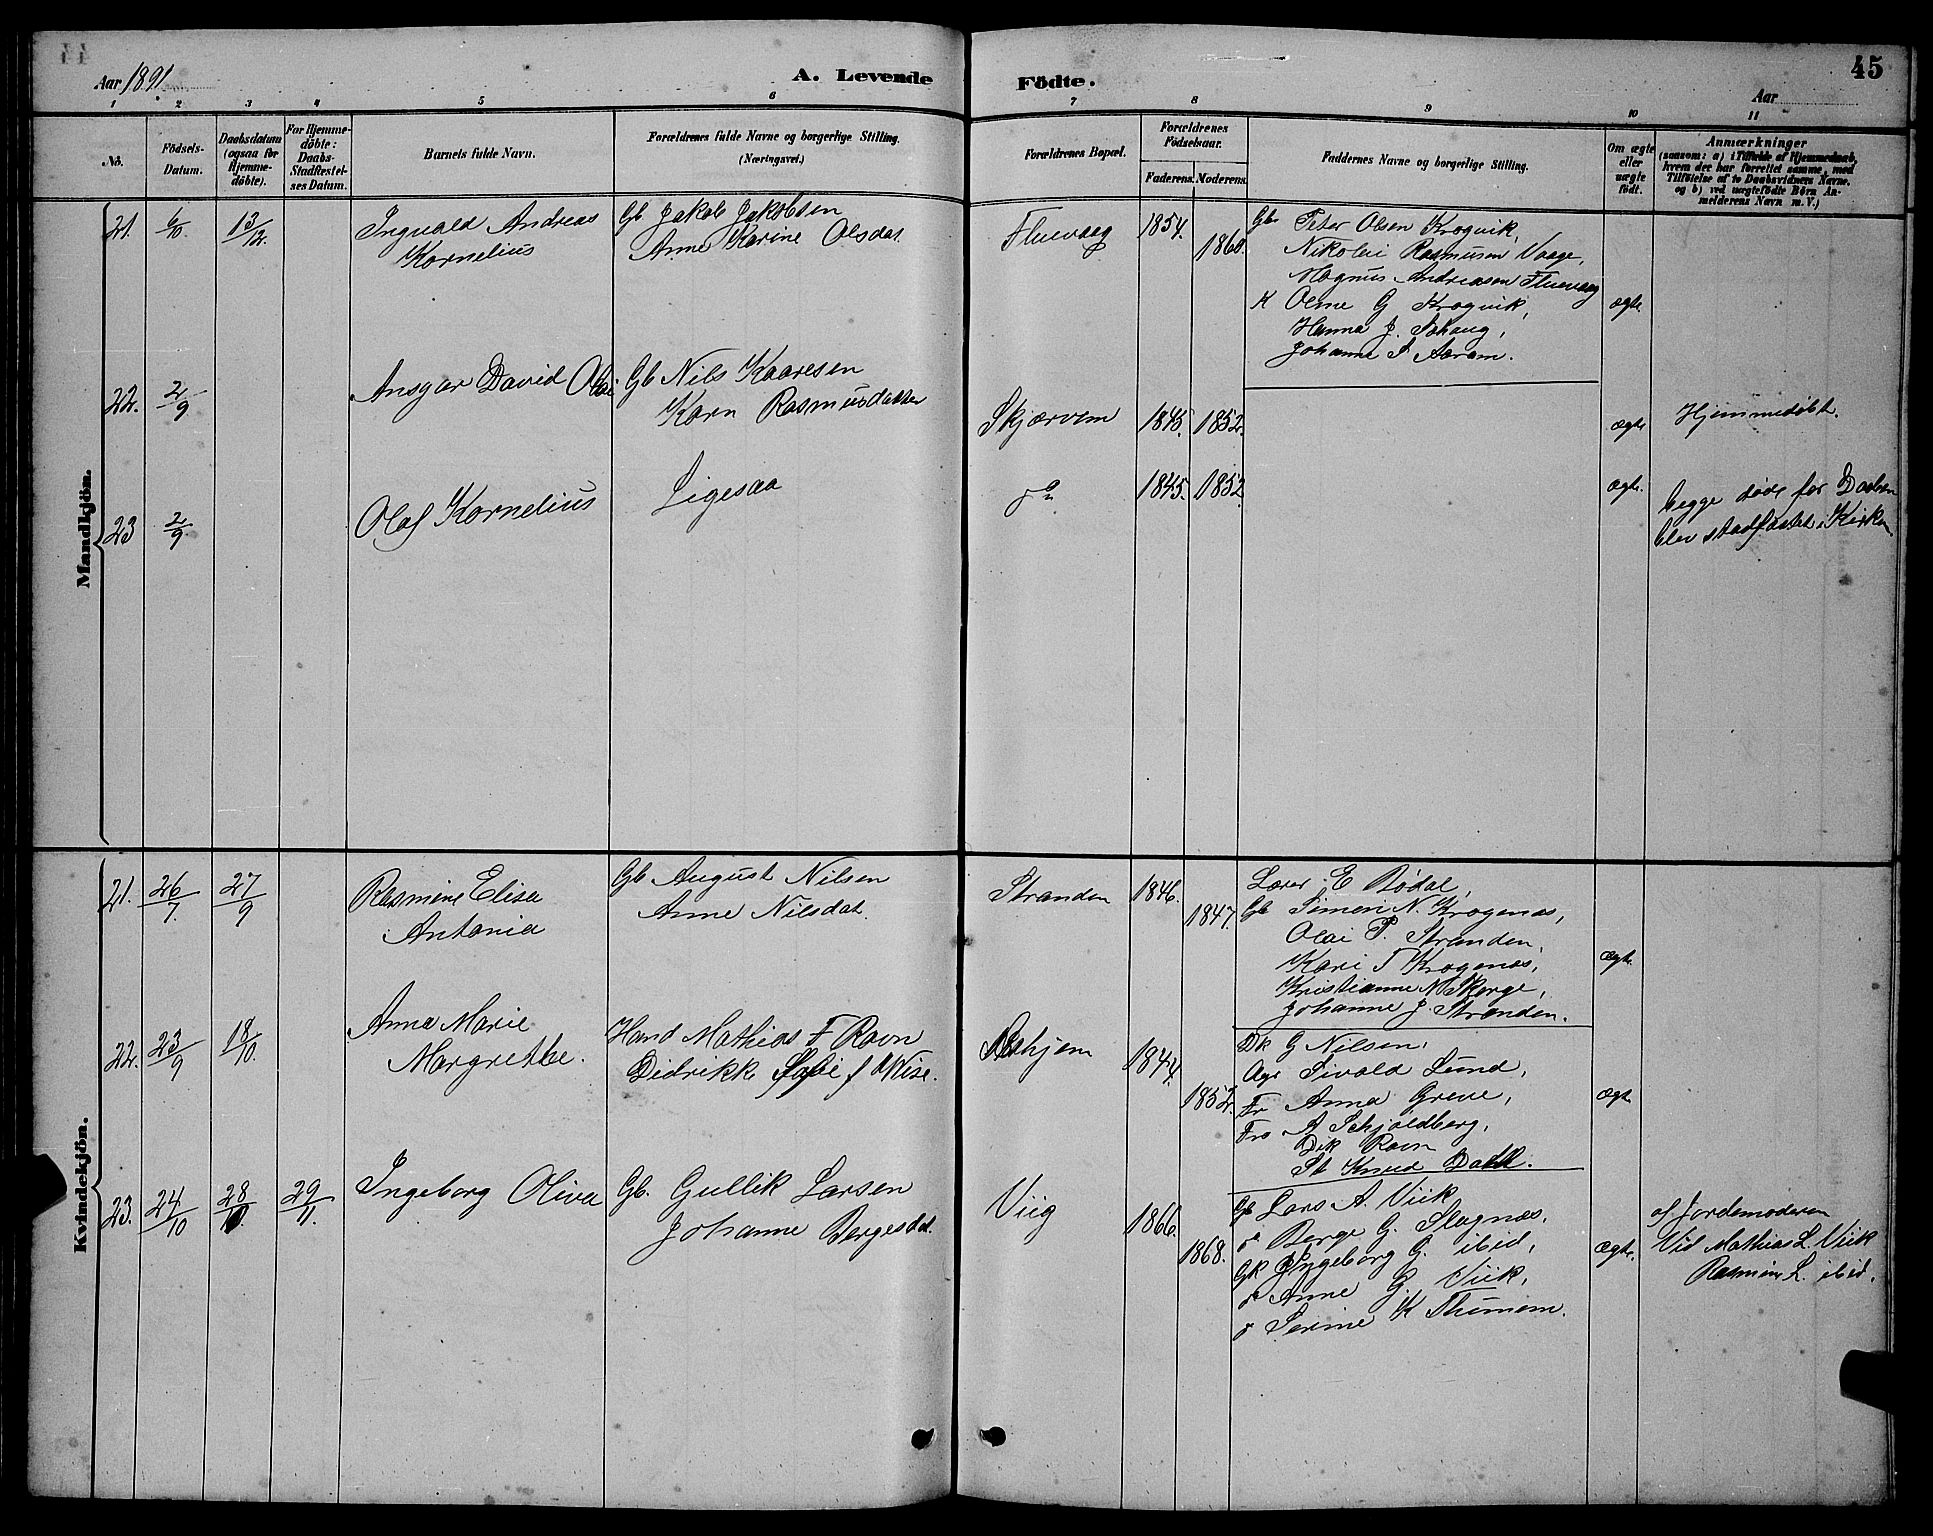 Aar 1891
A. Levende
Födte.
Aar
45
1 2 3 4 5 6 7 8 9 10 11
No.
Födsels-
Datum.
Daabsdatum
(ogsaa for
Hjemme-
döbte).
For Hjemme-
döbte:
Daabs-
Stadfæstel-
ses Datum.
Barnets fulde Navn.
Forældrenes fulde Navne og borgerlige Stilling.
(Næringsvei.)
Forældrenes Bopæl.
Forældrenes
Födselsaar.
Faderens. Moderens.
Faddernes Navne og borgerlige Stilling.
Om ægte
eller
uægte
födt.
Anmærkninger
(saasom: a) i Tilfælde af Hjemmedaab,
hvem der har forrettet samme, med
Tilföielse af to Daabsvidners Navne,
og b) ved uægtefödte Börn An-
melderens Navn m. V.)
Mandkjön.
21. 6/10 13/12.
Ingvald Andreas
Kornelius
Gb Jakob Jakobsen
Anne Karine Olsdat.
Fluevaag
1854.
1860.
Gb Peter Olsen Krogvik,
Nikolai Rasmusen Vaage,
Magnus Andreasen Fluevaag
K Oline G Krogvik,
Hanna J.
Johanne S Aaram.
ægte
22. 2/9
Ansgar David Olai
Gb Nils Kaaresen
Karn Rasmusdatter
Skjærvem
1845. 1852.
ægte
Hjemmedøbt.
23 2/9
Olaf Kornelius
Ligesaa
do
1845. 1852
ægte.
begge døde før Daaben
blev stadfæstet i Kirken
Kvindekjön.
21. 26/7 27/9
Rasmine Elisa
Antonia
Gb August Nilsen
Anne Nilsdat.
Stranden
1846.
1847.
Lærer E Bödal,
Gb Simen N. Krogenæs,
Olai P. Stranden,
Kari T Krogenæs,
Kristianne N Skorge,
Johanne J. Stranden.
ægte.
22. 23/9 18/10.
Anna Marie
Margrethe.
Hand Mathias F Ravn
Didrikke Sofie f Wise.
Askjem
1844.
1852.
Dk G Nilsen,
Agt Sivald Lund,
Fr Anna Greve,
Frø A Schjoldberg,
Dik Ravn
St Knud Dahl.
ægte
23. 24/10 28/10. 29/11.
Ingeborg Oliva
Gb. Gullik Larsen
Johanne Bergesdat.
Viig
1866.
1868.
Gb Lars A. Viik
do Berge G. Slagnæs,
Gk Ingeborg G. ibid,
do Anne G. Viik,
do Serine K Thunem.
ægte.
af Jordemoderen
Vid Mathias L. Viik
Rasmine L. ibid.